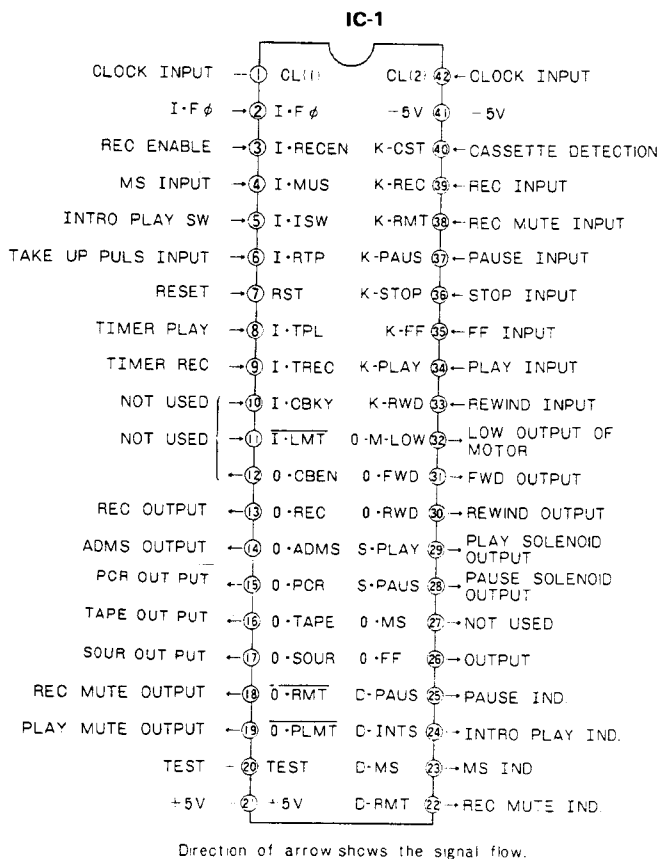 IC-1
CLOCK INPUT 1 CL(1) CL(2) 42 CLOCK INPUT
I·Fφ 2 I·Fφ -5V 41 -5V
REC ENABLE 3 I·RECEN K-CST 40 CASSETTE DETECTION
MS INPUT 4 I·MUS K-REC 39 REC INPUT
INTRO PLAY SW 5 I·ISW K-RMT 38 REC MUTE INPUT
TAKE UP PULS INPUT 6 I·RTP K-PAUS 37 PAUSE INPUT
RESET 7 RST K-STOP 36 STOP INPUT
TIMER PLAY 8 I·TPL K-FF 35 FF INPUT
TIMER REC 9 I·TREC K-PLAY 34 PLAY INPUT
NOT USED 10 I·CBKY K-RWD 33 REWIND INPUT
NOT USED 11 I·LMT O-M-LOW 32 LOW OUTPUT OF
MOTOR
12 O·CBEN O·FWD 31 FWD OUTPUT
REC OUTPUT 13 O·REC O·RWD 30 REWIND OUTPUT
ADMS OUTPUT 14 O·ADMS S·PLAY 29 PLAY SOLENOID
OUTPUT
PCR OUT PUT 15 O·PCR S·PAUS 28 PAUSE SOLENOID
OUTPUT
TAPE OUT PUT 16 O·TAPE O·MS 27 NOT USED
SOUR OUT PUT 17 O·SOUR O·FF 26 OUTPUT
REC MUTE OUTPUT 18 O·RMT D-PAUS 25 PAUSE IND.
PLAY MUTE OUTPUT 19 O·PLMT D-INTS 24 INTRO PLAY IND.
TEST 20 TEST D-MS 23 MS IND
+5V 21 +5V D-RMT 22 REC MUTE IND.
Direction of arrow shows the signal flow.